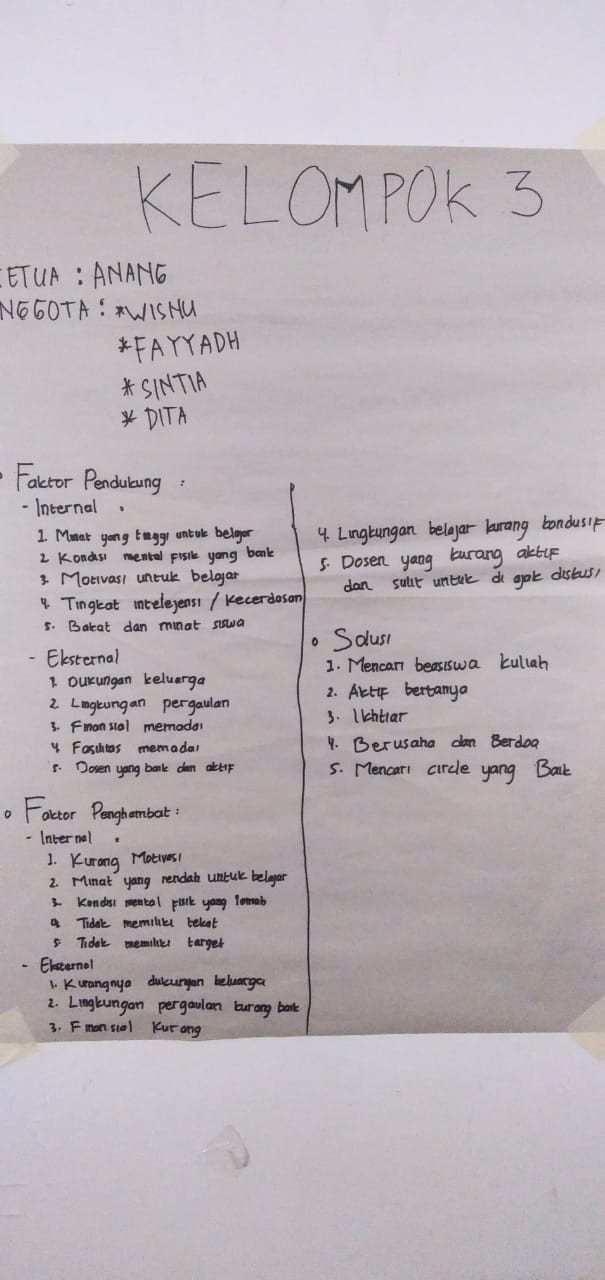 KELOMPOK 3
KETUA : ANANG
ANGGOTA : *WISNU
*FAYYADH
*SINTIA
*DITA
Faktor Pendukung :
- Internal :
1. Minat yang tinggi untuk belajar
2. Kondisi mental fisik yang baik
3. Motivasi untuk belajar
4. Tingkat intelejensi / kecerdasan
5. Bakat dan minat siswa
- Eksternal
1. Dukungan keluarga
2. Lingkungan pergaulan
3. Finansial memadai
4. Fasilitas memadai
5. Dosen yang baik dan aktif
o Faktor Penghambat :
- Internal :
1. Kurang Motivasi
2. Minat yang rendah untuk belajar
3. Kondisi mental fisik yang lemah
4. Tidak memiliki tekat
5. Tidak memiliki target
- Eksternal
1. Kurangnya dukungan keluarga
2. Lingkungan pergaulan kurang baik
3. Finansial Kurang
4. Lingkungan belajar kurang kondusif
5. Dosen yang kurang aktif
dan sulit untuk di ajak diskusi
o Solusi
1. Mencari beasiswa kuliah
2. Aktif bertanya
3. Ikhtiar
4. Berusaha dan Berdoa
5. Mencari circle yang Baik